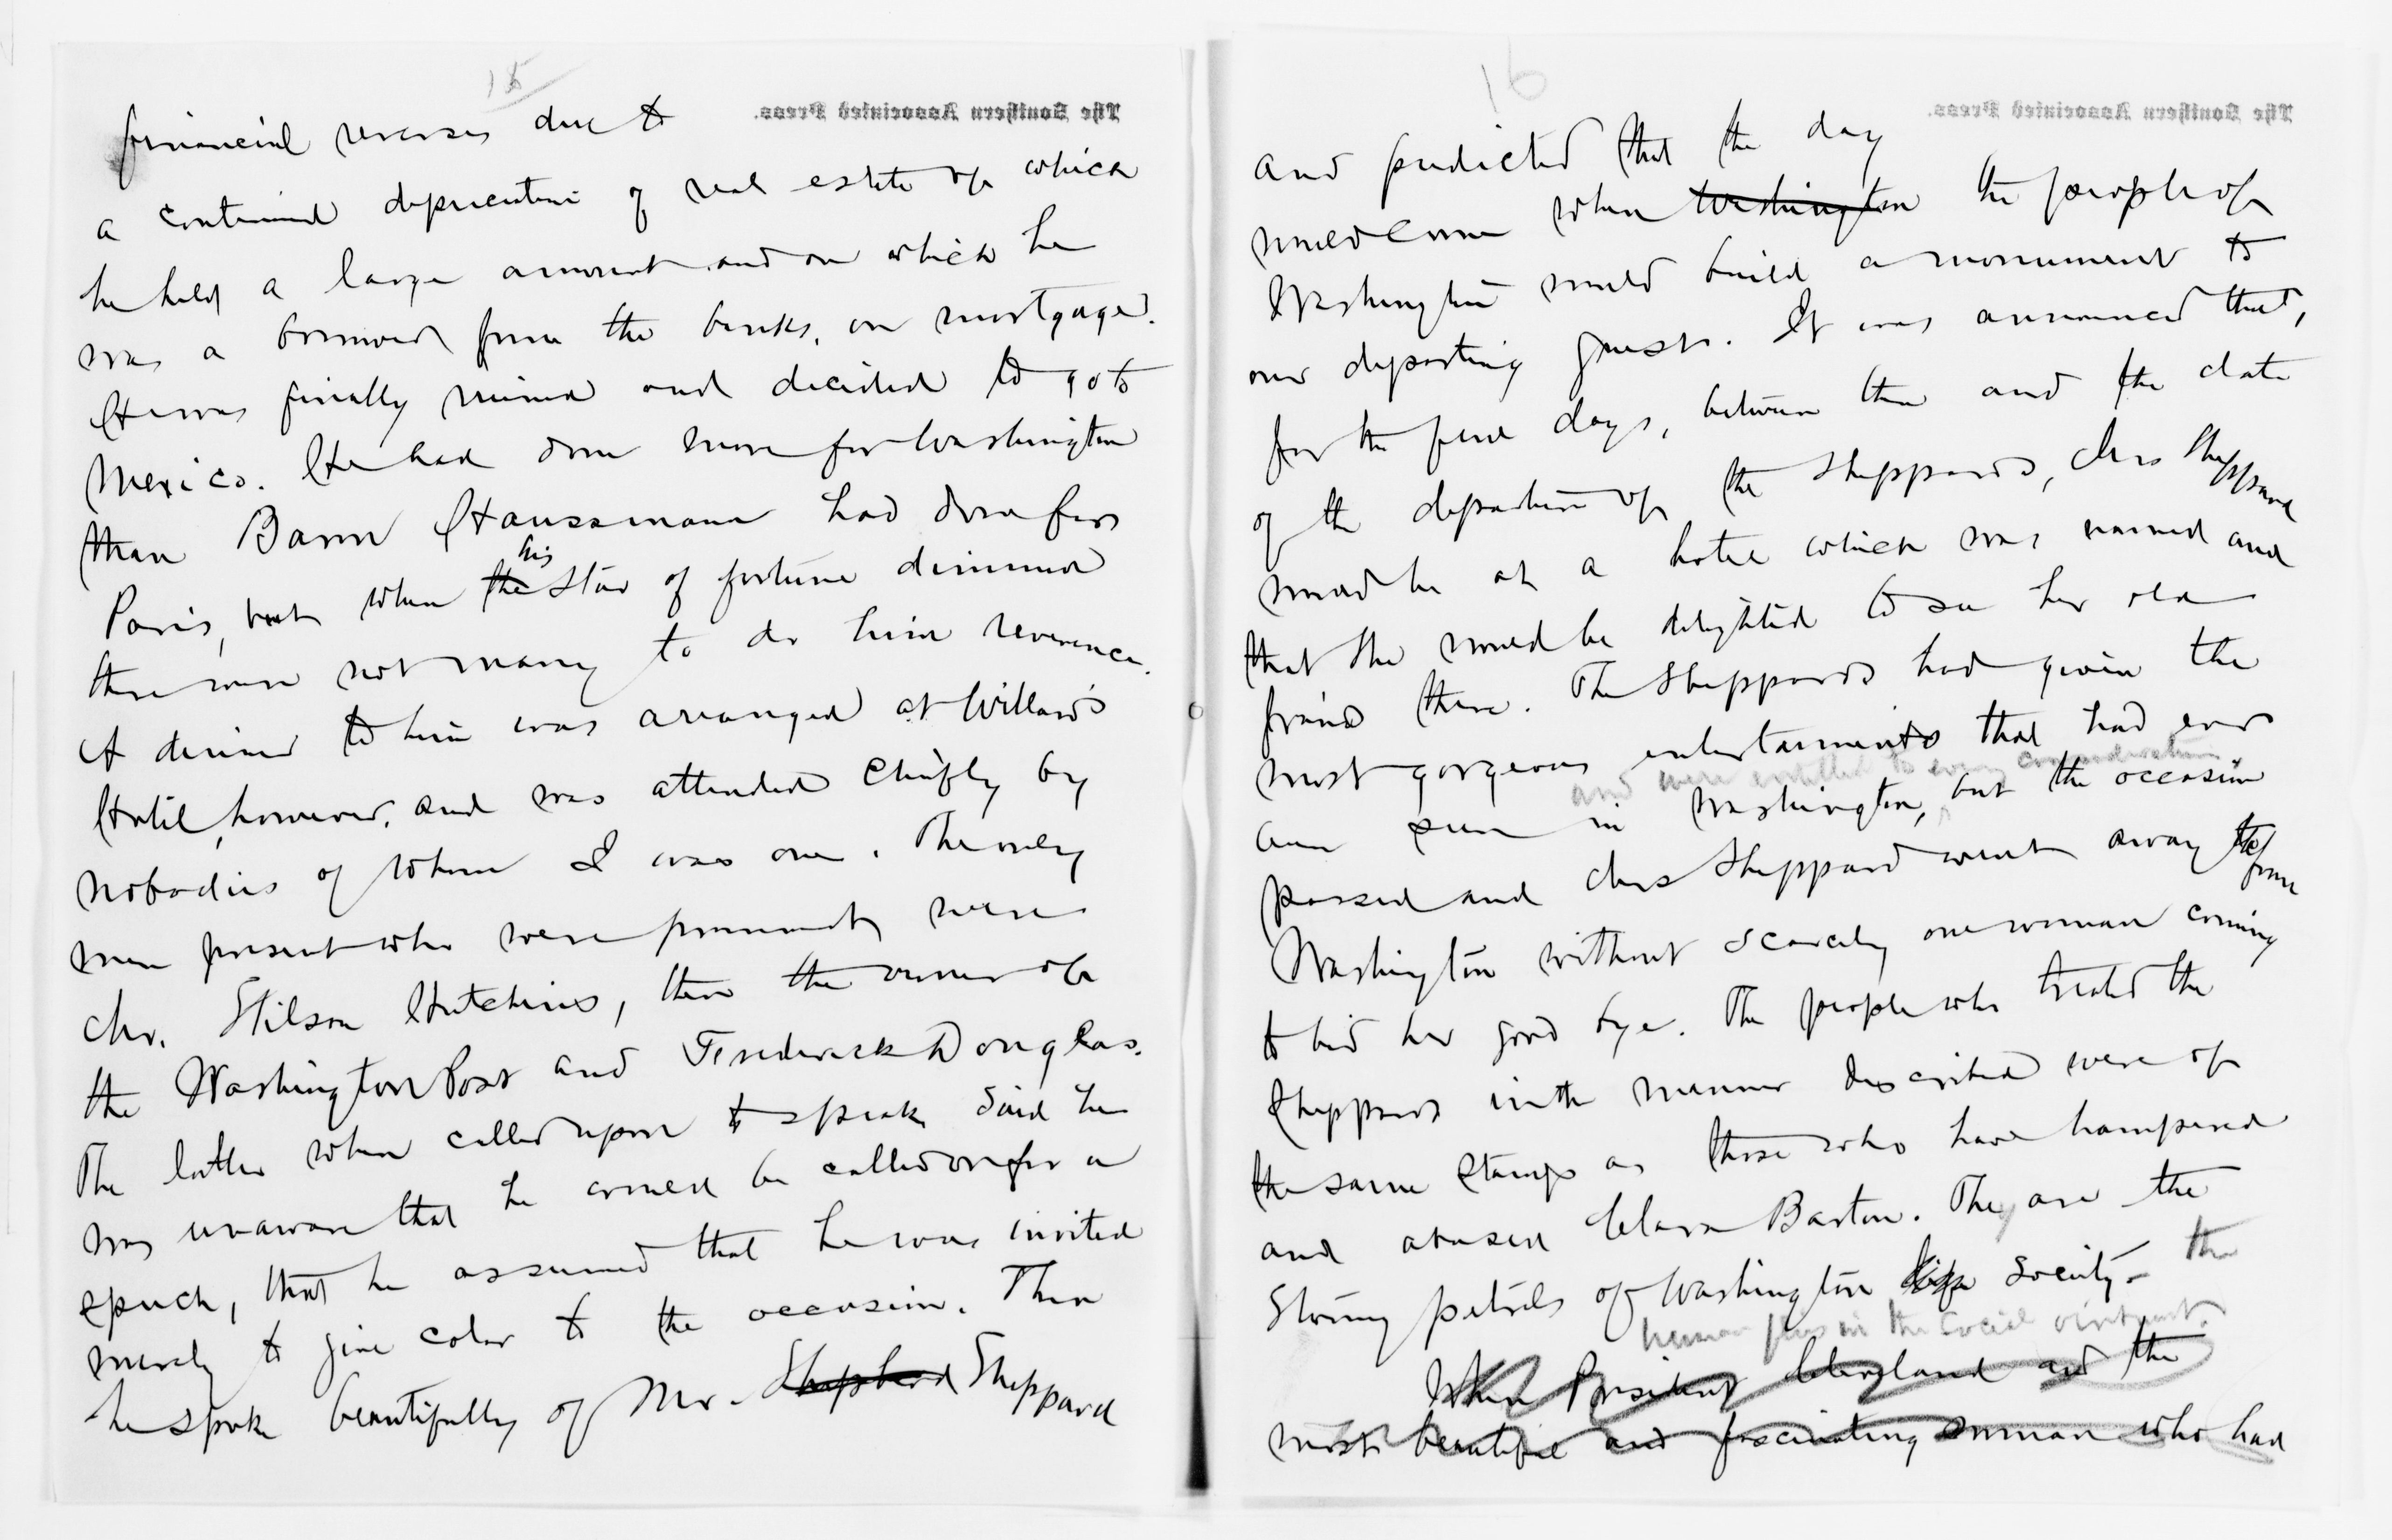 15
The Southern Associated Press.
financial reverses due to
a continued depreciation of real estate of which
he held a large amount and on which he
was a borrower from the banks, on mortgage.
He was finally ruined and decided to go to
Mexico. He had done more for Washington
than Baron Haussmann had done for
Paris, but when the his star of fortune dimmed
there were not many to do him reverence.
A dinner to him was arranged at Willard's
Hotel, however, and was attended chiefly by
nobodies of whom I was one. The only
men present who were prominent were
Mr. Stilson Hutchins, then the owner of
the Washington Post and Frederick Douglas.
The latter when called upon to speak said he
was unaware that he would be called on for a
speech, that he assumed that he was invited
merely to give color to the occasion. Then
he spoke beautifully of Mr. Shepherd Sheppard
16
The Southern Associated Press.
and predicted that the day
would come when Washington the people of
Washington would build a monument to
our departing guest. It was announced that,
for the few days, between then and the date
of the departure of the Sheppards, Mrs Sheppard
would be at a hotel which was named and
that she would be delighted to see her old
friends there. The Sheppards had given the
most gorgeous entertainments that had ever
and were entitled to every consideration
been seen in Washington, but the occasion
passed and Mrs Sheppard went away from
Washington without scarcely one woman coming
to bid her good bye. The people who treated the
Sheppards in the manner described were of
the same stamp as those who have hampered
and abused Clara Barton. They are the
Stormy petrels of Washington life society - the
human flies in the social ointment.
When President Cleveland and the
most beautiful and fascinating woman who had